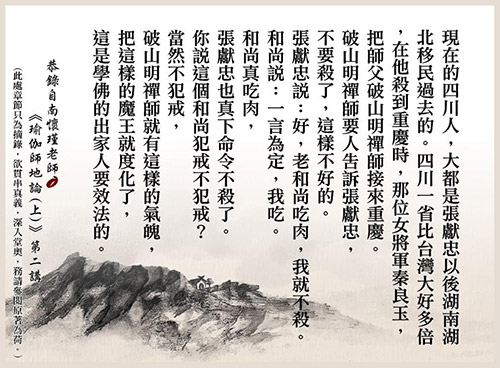 現在的四川人，大都是張獻忠以後湖南湖
北移民過去的。四川一省比台灣大好多倍
，在他殺到重慶時，那位女將軍秦良玉，
把師父破山明禪師接來重慶。
破山明禪師要人告訴張獻忠，
不要殺了，這樣不好的。
張獻忠說：好，老和尚吃肉，我就不殺。
和尚說：一言為定，我吃。
和尚真吃肉，
張獻忠也真下命令不殺了。
你說這個和尚犯戒不犯戒？
當然不犯戒，
破山明禪師就有這樣的氣魄，
把這樣的魔王就度化了，
這是學佛的出家人要效法的。
恭錄自南懷瑾老師
《瑜伽師地論（上）》第二講
（此處章節只為摘錄，欲貫串真義，深入堂奧，務請參閱原著為荷。）